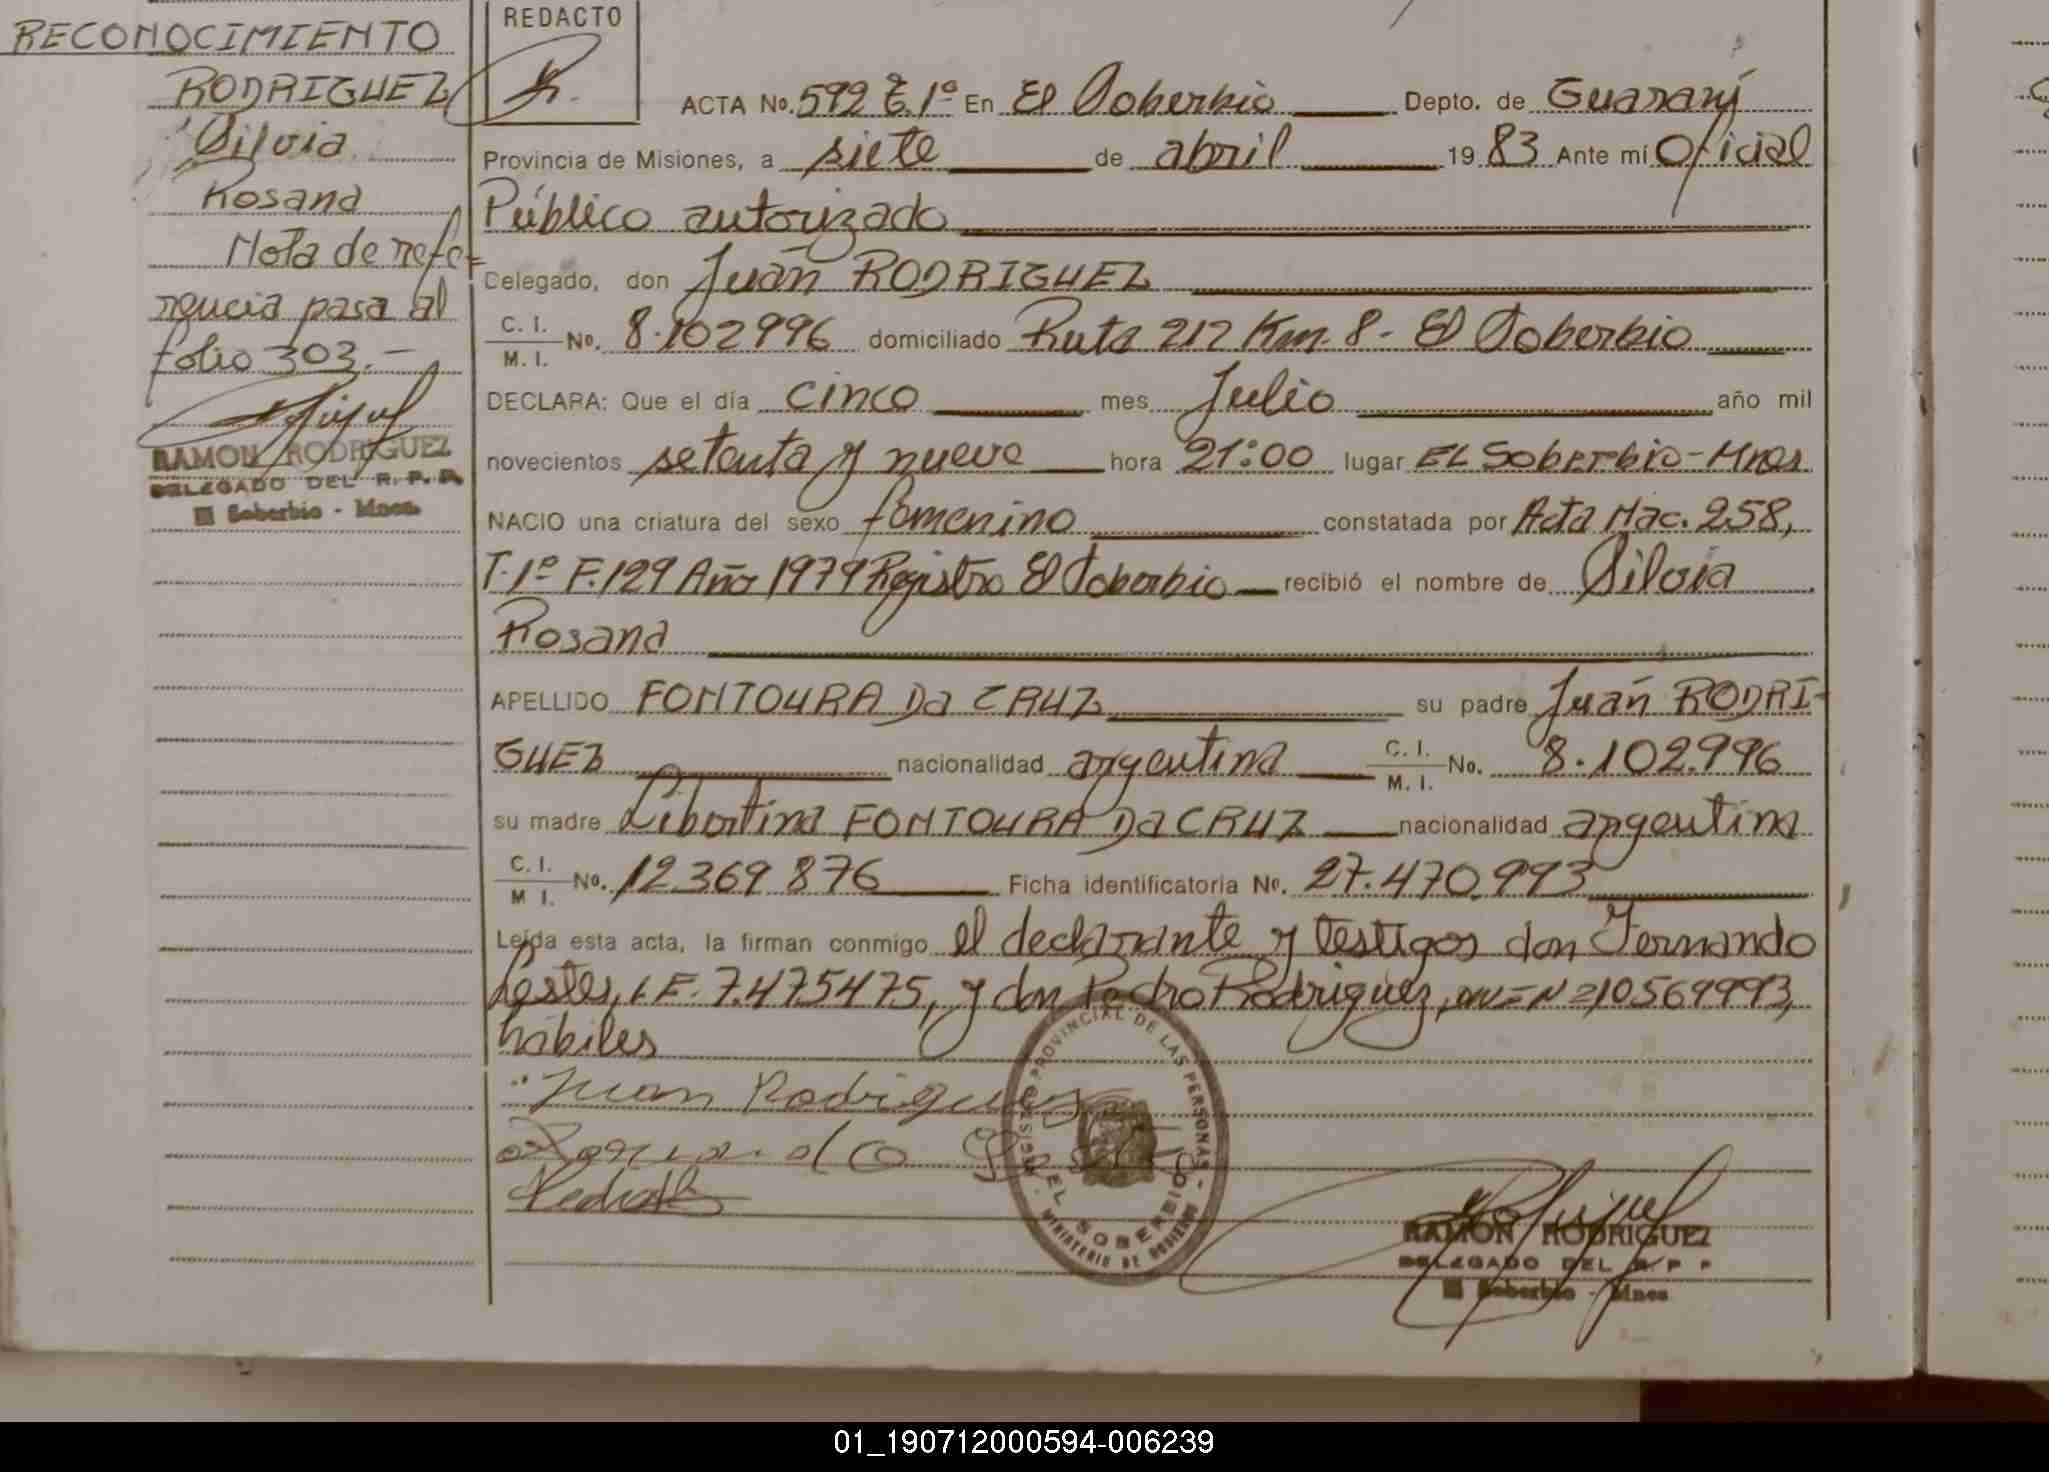 RECONOCIMIENTO
RODRIGUEZ
Silvia
Rosana
Nota de refe=
rencia pasa al
folio 303.-
RAMON RODRIGUEZ
DELEGADO DEL R. P. P.
El Soberbio - Mnes.
REDACTO
ACTA No. 592 T. 1º En El Soberbio Depto. de Guaraní
Provincia de Misiones, a siete de abril 1983 Ante mí Oficial
Público autorizado
Delegado, don Juan RODRIGUEZ
C. I.
M. I. No. 8.102996 domiciliado Ruta 212 Km. 8 - El Soberbio
DECLARA: Que el día cinco mes Julio año mil
novecientos setenta y nueve hora 21:00 lugar EL Soberbio - Mnes
NACIO una criatura del sexo femenino constatada por Acta Nac. 258,
T. 1º F. 129 Año 1979 Registro El Soberbio recibió el nombre de Silvia
Rosana
APELLIDO FONTOURA Da CRUZ su padre Juan RODRI-
GUEZ nacionalidad argentina C. I. M. I. No. 8.102.996
su madre Libertina FONTOURA Da CRUZ nacionalidad argentina
C. I.
M. I. No. 12369876 Ficha identificatoria No. 27.470.993
Leída esta acta, la firman conmigo el declarante y testigos don Fernando
L.E. 7.475475, y don Pedro Rodriguez, 10569993,
hábiles
Juan Rodriguez
REGISTRO PROVINCIAL DE LAS PERSONAS
EL SOBERBIO
MINISTERIO DE GOBIERNO
RAMON RODRIGUEZ
DELEGADO DEL R P P
El Soberbio - Mnes
01_190712000594-006239